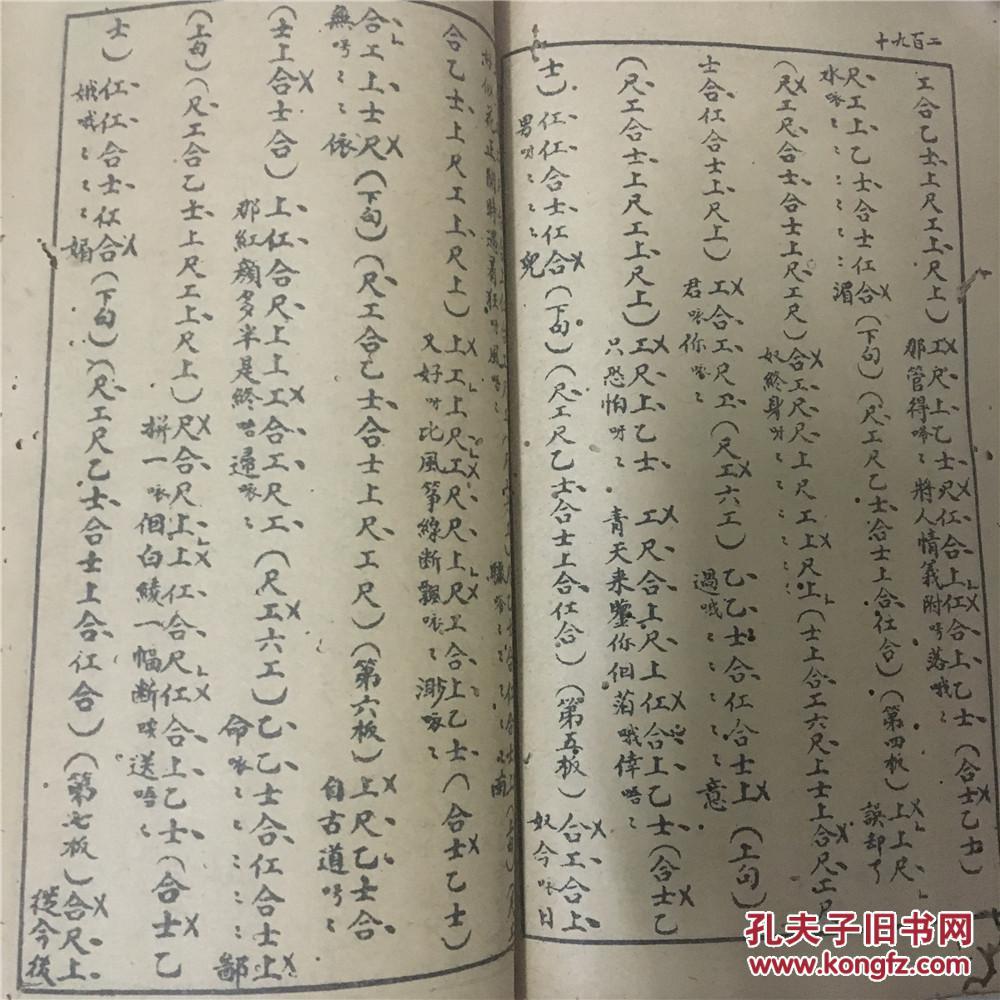 二百九十
工合乙士上尺工上尺上）工尺上乙士尺仜合上仜合上乙士（合士乙士）
那管得啼ミ將人情義附吁落哦ミ
尺工上乙士合士仜合（下句）（尺工尺乙士合士上合仕合）（第四板）上上尺
水咳ミミ湄 誤却了
（尺工尺合士合士上尺工尺）合工尺尺上尺工上尺上（士上合工六尺上士上合尺工尺
奴終身呀ミ
士合仜合士上尺上）工合工尺工（尺工六工）乙乙士合仜合士上（上句）
君咳你咳ミ 過哦ミミミ意
（尺工合士上尺工上尺上）工尺上乙士 工尺合上尺上仜合上乙士（合士乙
只恐怕呀ミ 青天来鑒你佪萡哦倖唔ミ
士）仜仜合士仜合（下句）（尺工尺乙士合士上合仕合）（第五板）合工合上
男呀ミミミ兒 奴今咳日
合乙士上尺工上尺上）上工上尺工尺尺上尺工合上乙士（合士乙士）
又好呀比風箏線斷飄咳ミ渺咳ミ
合工上士尺（下句）（尺工合乙士合士上尺工尺）（第六板）上尺乙士合
無吁ミミ依 自古道吁ミ
（士上合士合）上仜合尺上上工合工尺工（尺工六工）乙乙士合仜合士上
那紅顏多半是終唔還咳ミ 命咳ミミミミ鄙
（上句）（尺工合乙士上尺工上尺上）尺合尺上上仜合尺仜合上乙士（合士乙
拼一咳佪白綾一幅斷咳送唔ミ
士）仜仜合士仜合（下句）（尺工尺乙士合士上合仜合）（第七板）合尺上
娥哦ミミミミ媚 從今後
孔夫子旧书网
www.kongfz.com